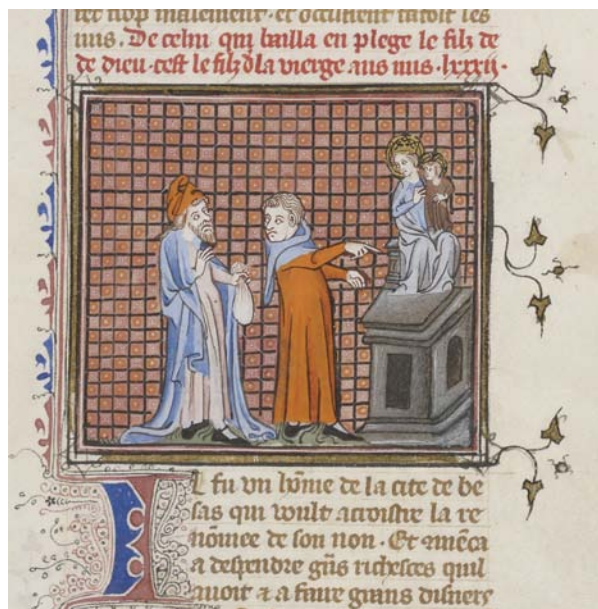 iuis. De celui qui bailla en plege le filz de
de dieu. cest le filz dla vierge aus iuis. lxxxij.
Il fu vn home de la cite de be
sas qui voult acroistre la re
nõmee de son non. Et amẽca
a despendre gñs richesces quil
auoit & a faire grans disners